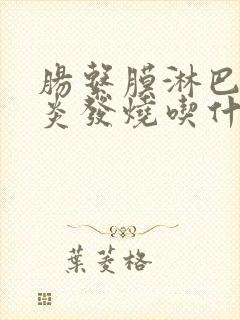 腸繫膜淋巴
炎發燒喫什
葉菱格